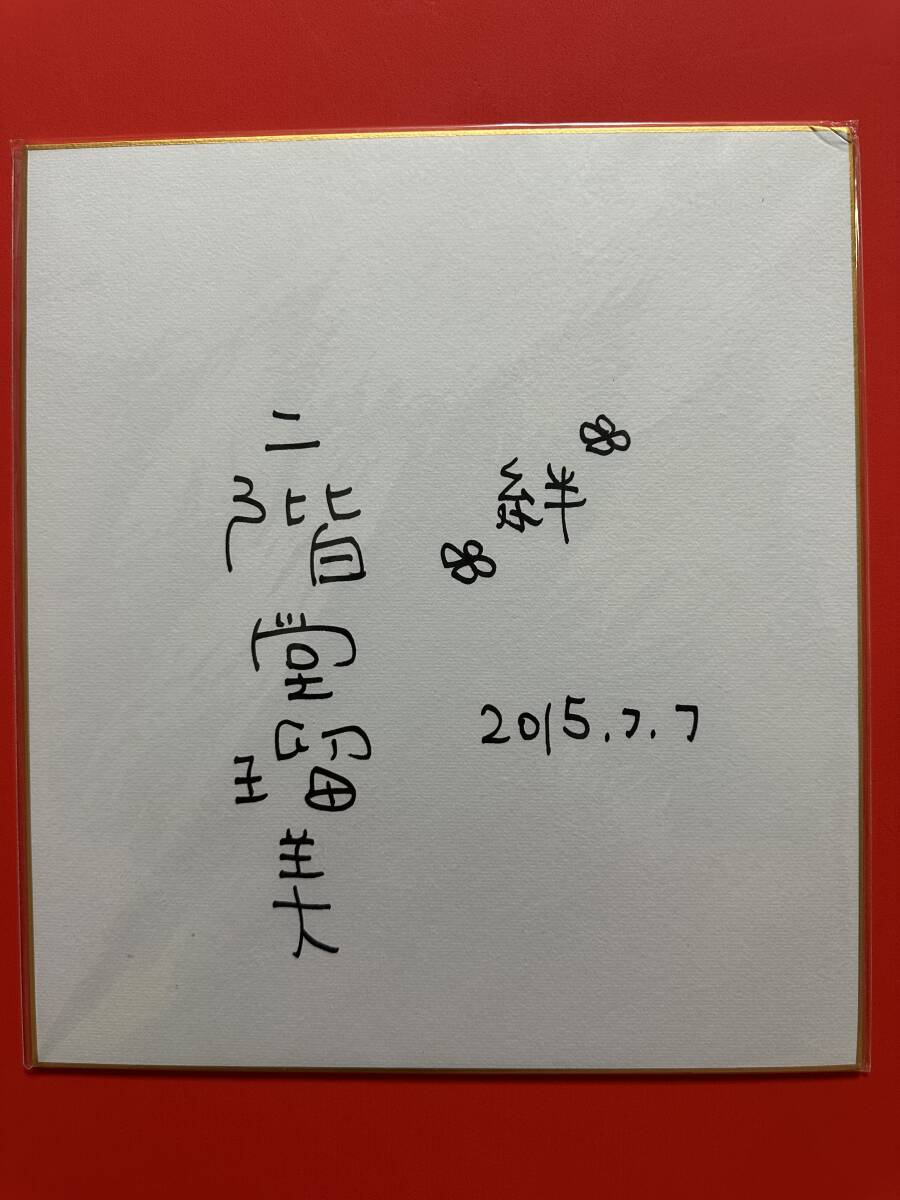 絆
2015.7.7
二階堂瑠美